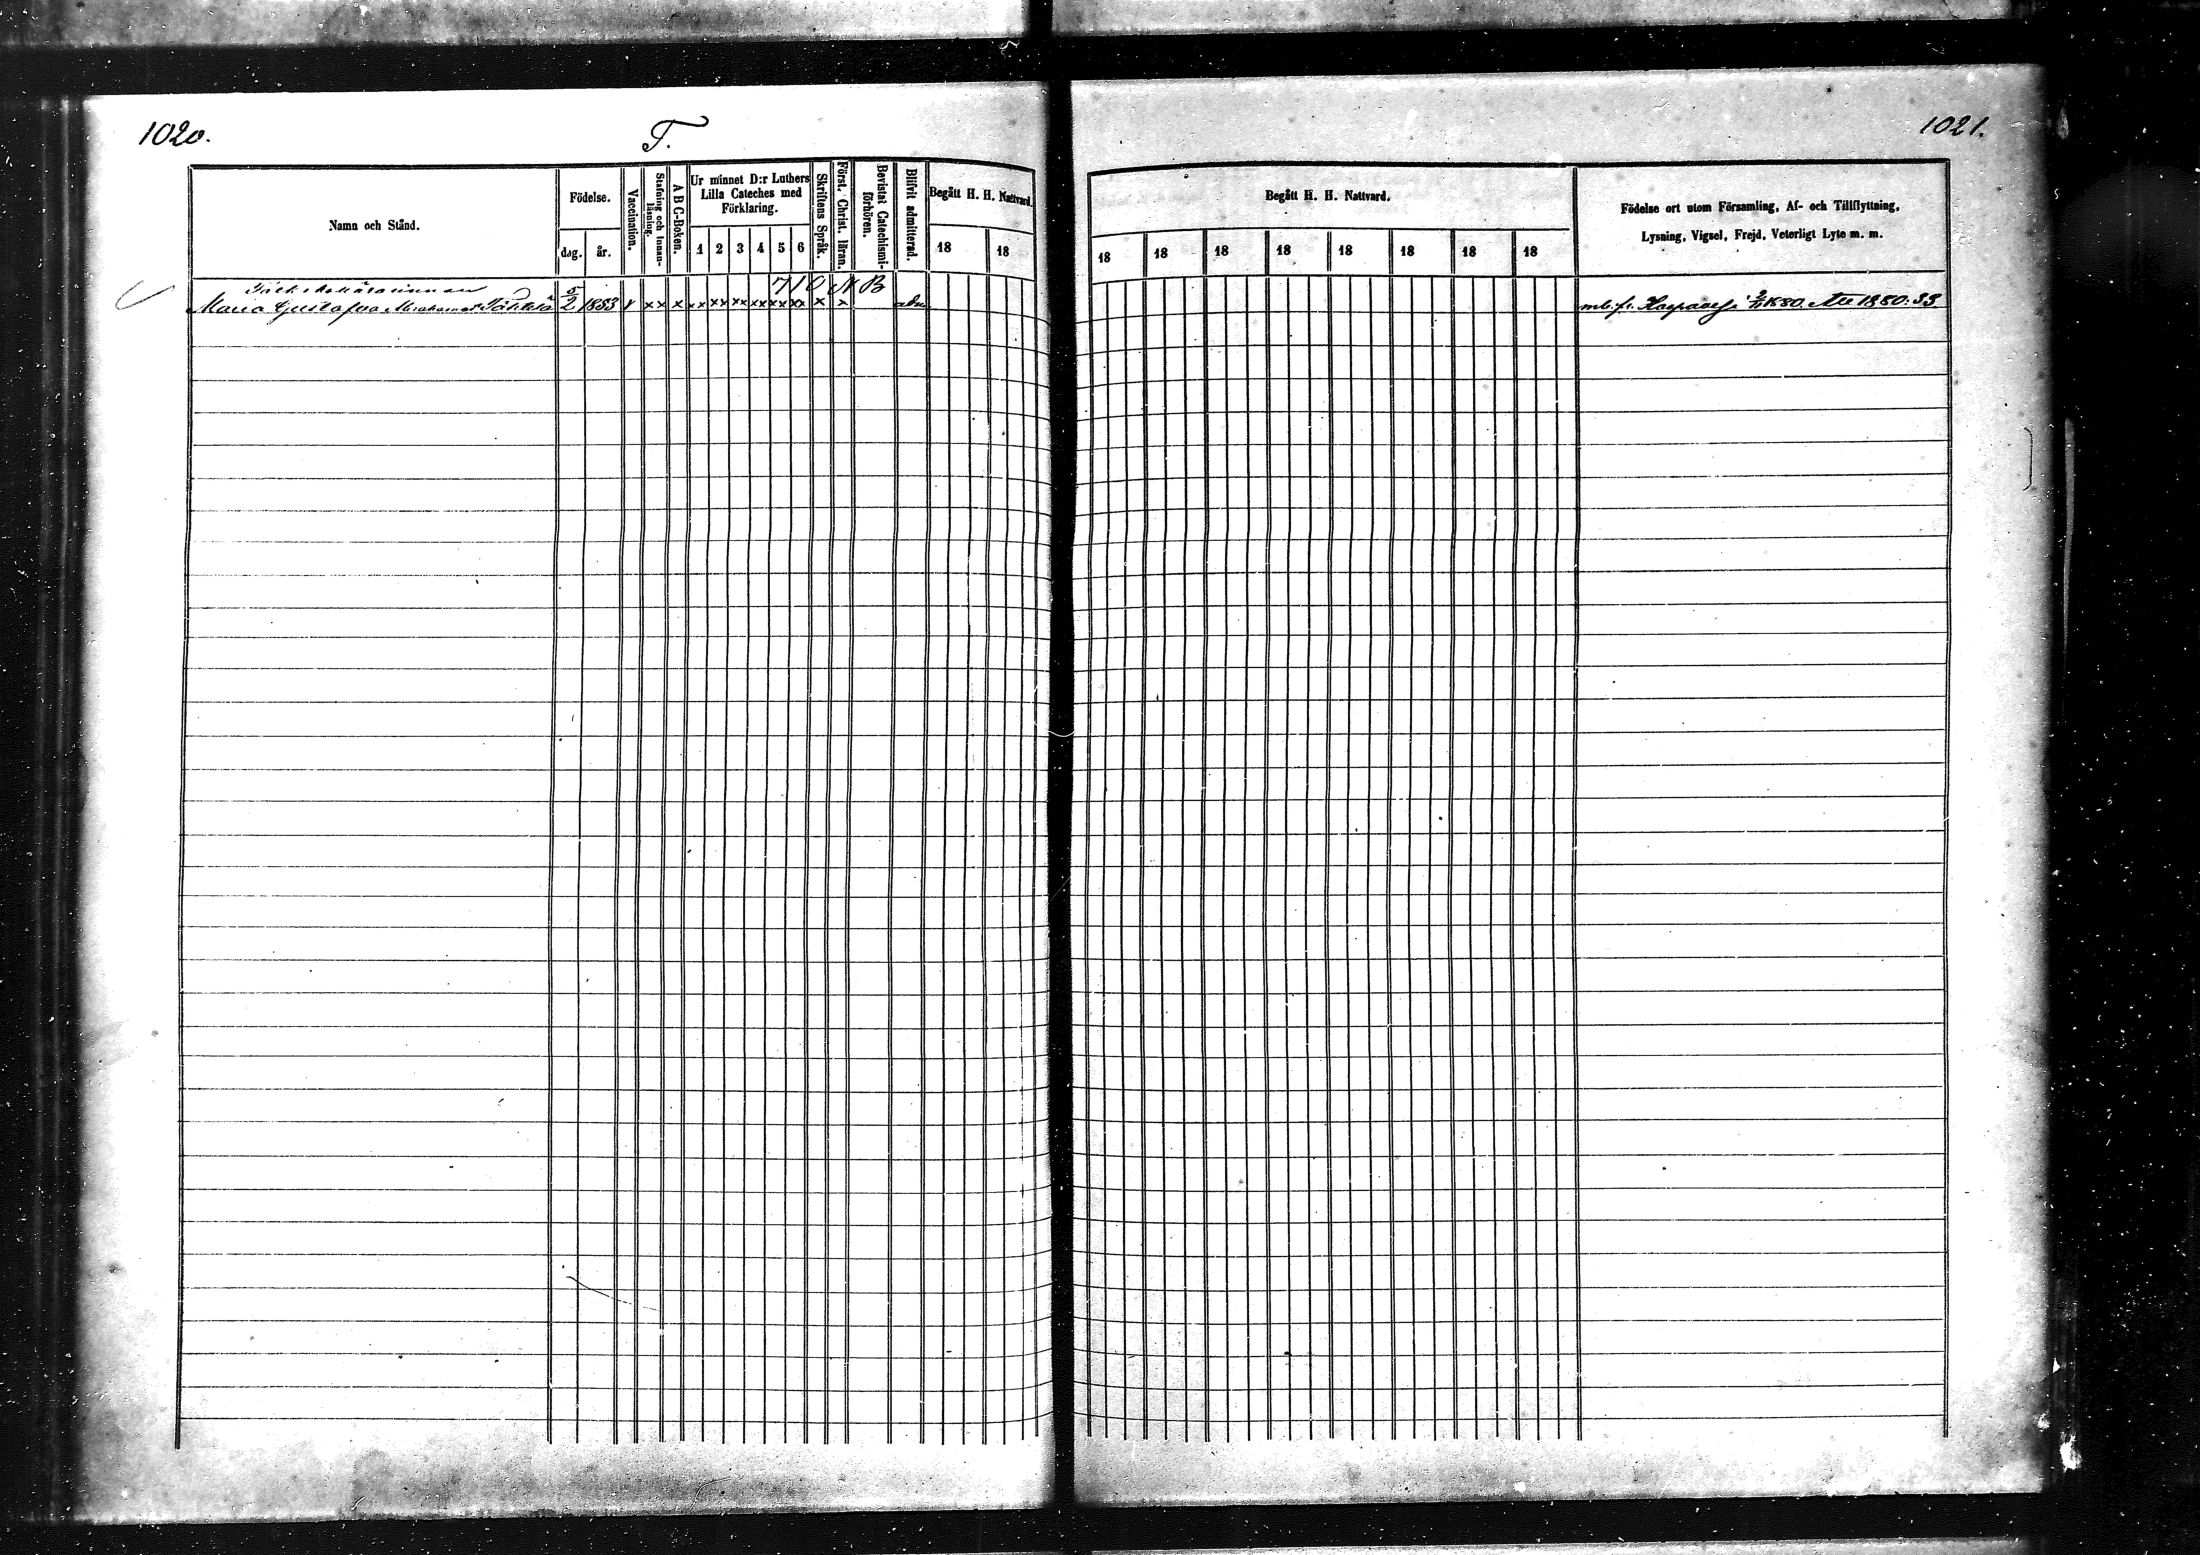 1020.
T.
1021.
Namn och Stånd.
Födelse.
dag.
år.
Vaccination.
Stafning och innan-
läsning.
A B C-Boken.
Ur minnet D:r Luthers
Lilla Cateches med
Förklaring.
1 2 3 4 5 6
Skriftens Språk.
Först. Christ. läran.
Bevistat Catechismi-
förhören.
Blifvit admitterad.
Begått H. H. Nattvard.
18 18
Begått H. H. Nattvard.
18 18 18 18 18 18 18 18
Födelse ort utom Församling, Af- och Tillflyttning,
Lysning, Vigsel, Frejd, Veterligt Lyte m. m.
710 N B
Maria Gustafva 5/2 1853 v xx x xx xx xx xx xx xx x x adm
mb. fr. 1880. Att 1880: 33.